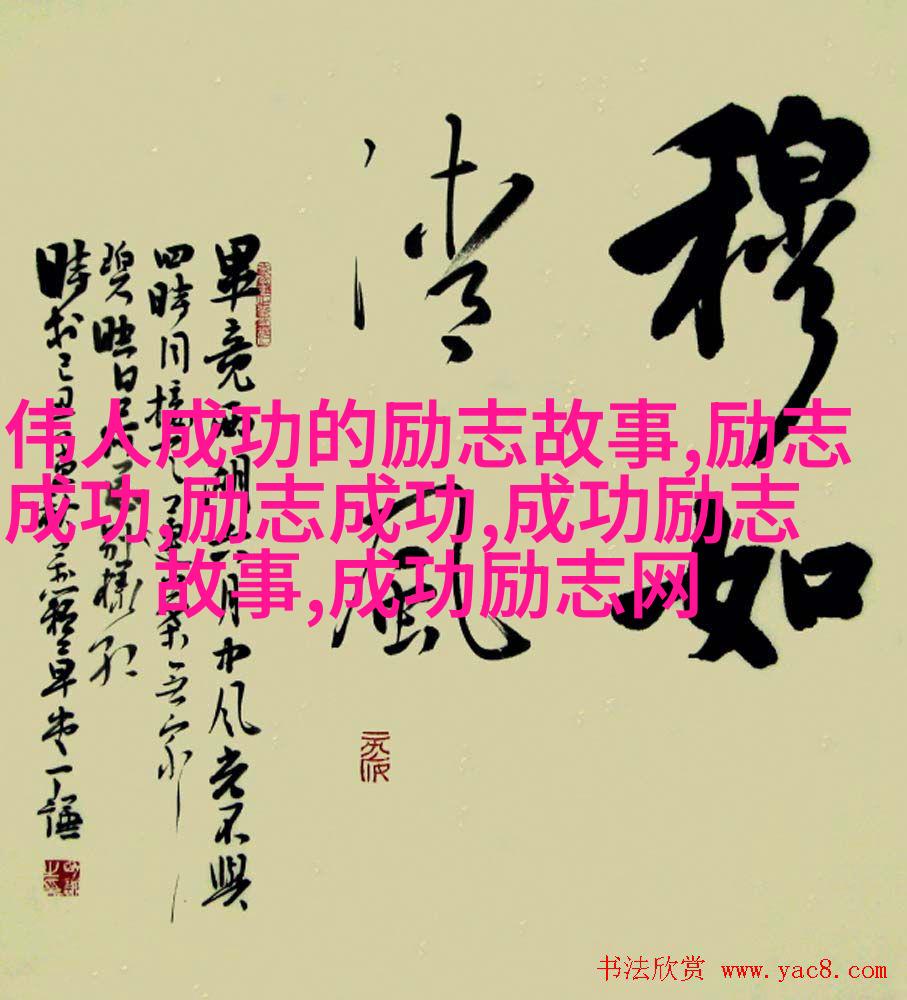 穆如
清風
畢竟西湖六月中風光不與
四時同接天蓮葉無窮
碧映日荷花別樣紅
伟人成功的励志故事,励志
成功,励志成功,成功励志
故事,成功励志网
书法欣赏 www.yac8.com